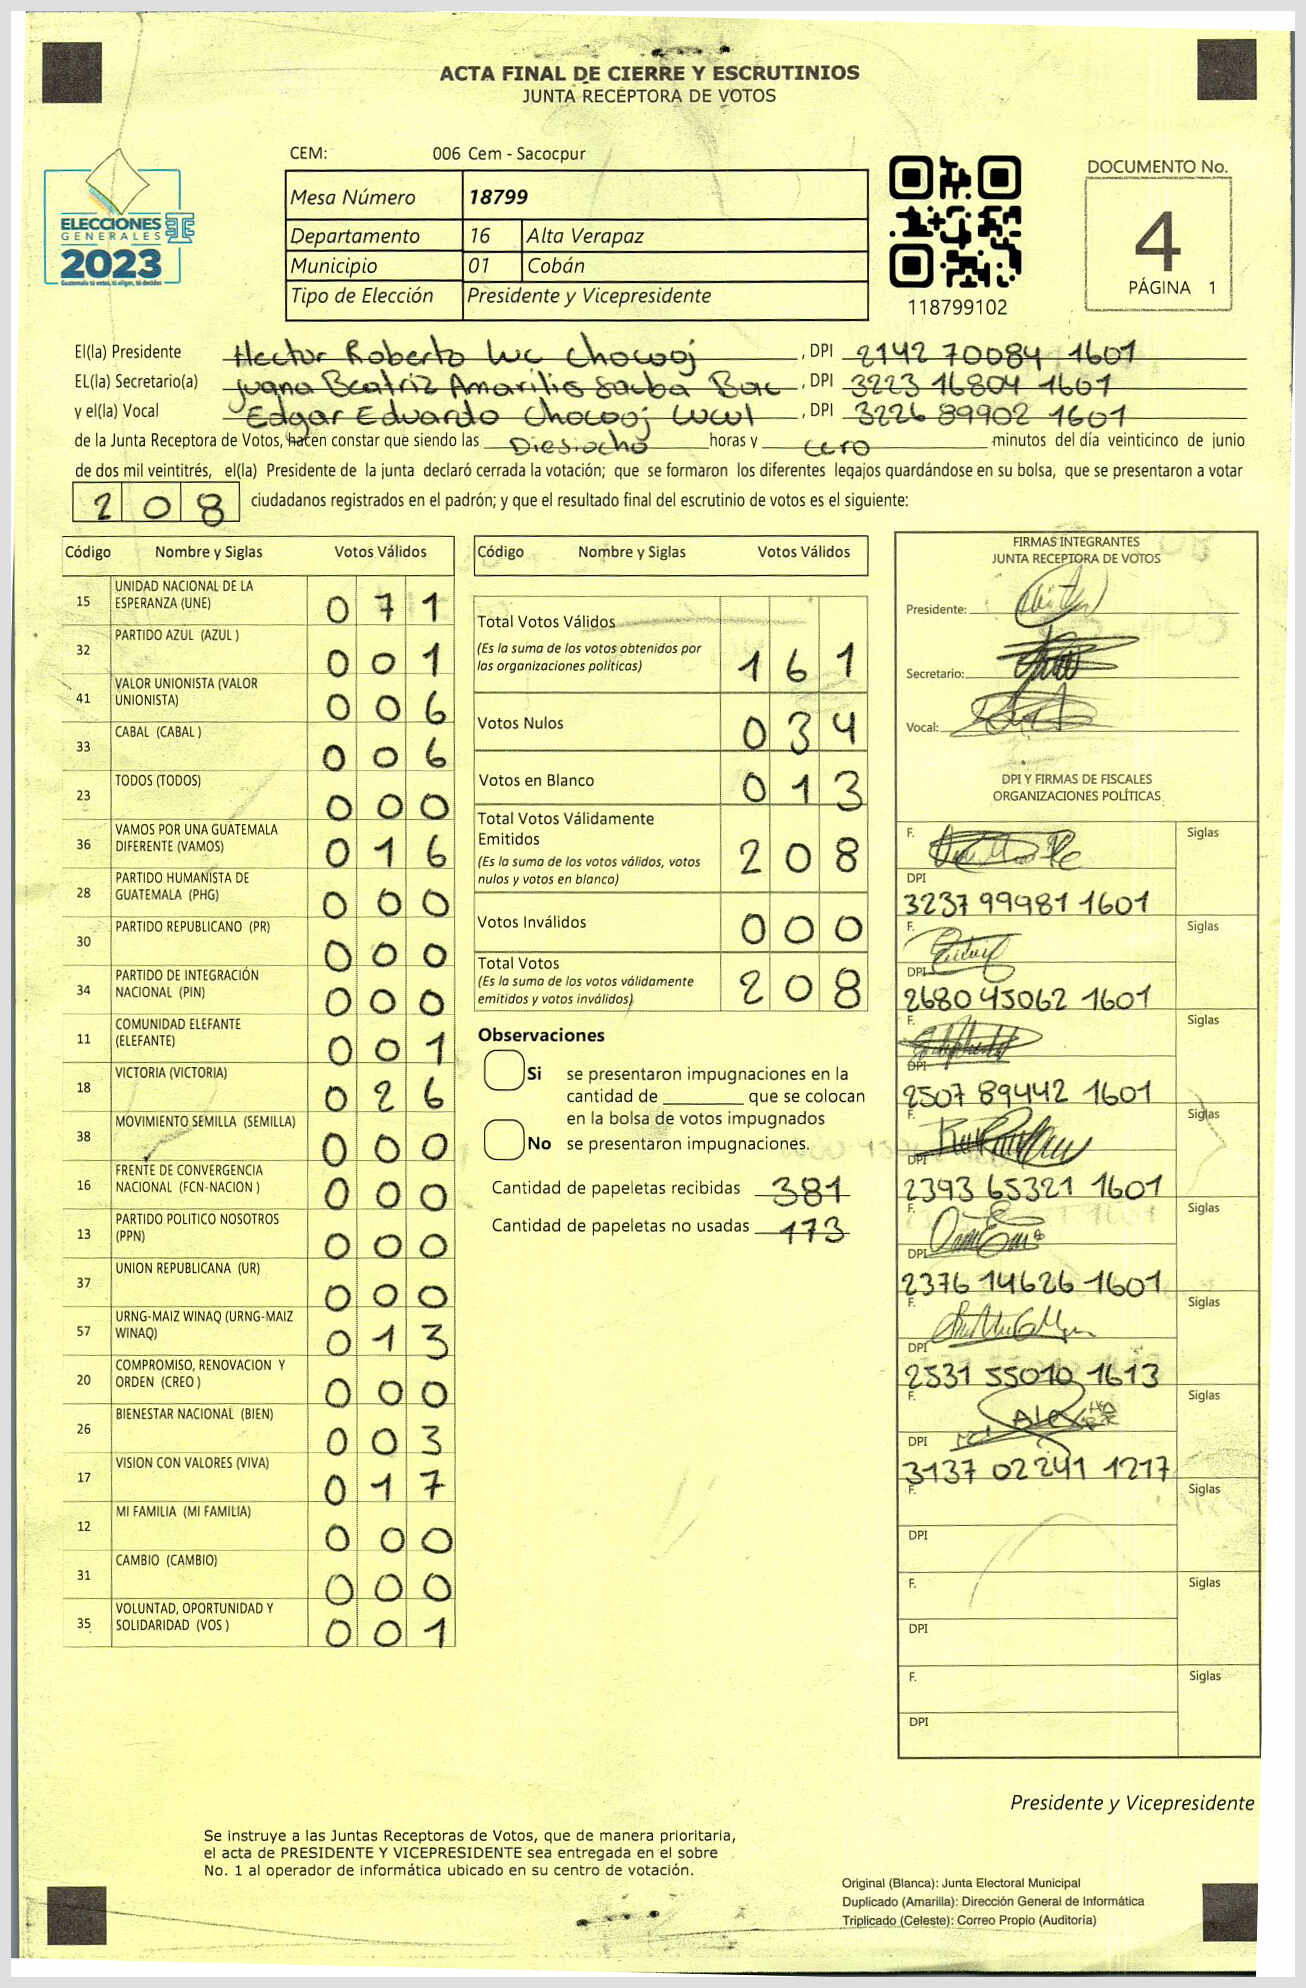 ACTA FINAL DE CIERRE Y ESCRUTINIOS
JUNTA RECEPTORA DE VOTOS
CEM: 006 Cem - Sacocpur
Mesa Número 18799
Departamento 16 Alta Verapaz
Municipio 01 Cobán
Tipo de Elección Presidente y Vicepresidente
ELECCIONES
GENERALES
2023
Guatemala tú votas, tú eliges, tú decides
118799102
DOCUMENTO No.
4
PÁGINA 1
El(la) Presidente Hector Roberto Wc Chocooj, DPI 2142 70084 1601
EL(la) Secretario(a) Juana Beatriz Amarilis Sacba Bac, DPI 3223 16804 1601
y el(la) Vocal Edgar Eduardo Chocooj, DPI 3226 89902 1601
de la Junta Receptora de Votos, hacen constar que siendo las Diesiocho horas y cero minutos del día veinticinco de junio
de dos mil veintitrés, el(la) Presidente de la junta declaró cerrada la votación; que se formaron los diferentes legajos quardándose en su bolsa, que se presentaron a votar
208 ciudadanos registrados en el padrón; y que el resultado final del escrutinio de votos es el siguiente:
Código Nombre y Siglas Votos Válidos
15 UNIDAD NACIONAL DE LA ESPERANZA (UNE) 0 7 1
32 PARTIDO AZUL (AZUL ) 0 0 1
41 VALOR UNIONISTA (VALOR UNIONISTA) 0 0 6
33 CABAL (CABAL ) 0 0 6
23 TODOS (TODOS) 0 0 0
36 VAMOS POR UNA GUATEMALA DIFERENTE (VAMOS) 0 1 6
28 PARTIDO HUMANISTA DE GUATEMALA (PHG) 0 0 0
30 PARTIDO REPUBLICANO (PR) 0 0 0
34 PARTIDO DE INTEGRACIÓN NACIONAL (PIN) 0 0 0
11 COMUNIDAD ELEFANTE (ELEFANTE) 0 0 1
18 VICTORIA (VICTORIA) 0 2 6
38 MOVIMIENTO SEMILLA (SEMILLA) 0 0 0
16 FRENTE DE CONVERGENCIA NACIONAL (FCN-NACION ) 0 0 0
13 PARTIDO POLITICO NOSOTROS (PPN) 0 0 0
37 UNION REPUBLICANA (UR) 0 0 0
57 URNG-MAIZ WINAQ (URNG-MAIZ WINAQ) 0 1 3
20 COMPROMISO, RENOVACION Y ORDEN (CREO ) 0 0 0
26 BIENESTAR NACIONAL (BIEN) 0 0 3
17 VISION CON VALORES (VIVA) 0 1 7
12 MI FAMILIA (MI FAMILIA) 0 0 0
31 CAMBIO (CAMBIO) 0 0 0
35 VOLUNTAD, OPORTUNIDAD Y SOLIDARIDAD (VOS ) 0 0 1
Código Nombre y Siglas Votos Válidos
Total Votos Válidos
(Es la suma de los votos obtenidos por
las organizaciones políticas) 1 6 1
Votos Nulos 0 3 4
Votos en Blanco 0 1 3
Total Votos Válidamente
Emitidos
(Es la suma de los votos válidos, votos
nulos y votos en blanco) 2 0 8
Votos Inválidos 0 0 0
Total Votos
(Es la suma de los votos válidamente
emitidos y votos inválidos) 2 0 8
Observaciones
Si se presentaron impugnaciones en la
cantidad de ________ que se colocan
en la bolsa de votos impugnados
No se presentaron impugnaciones.
Cantidad de papeletas recibidas 381
Cantidad de papeletas no usadas 173
FIRMAS INTEGRANTES
JUNTA RECEPTORA DE VOTOS
Presidente:
Secretario:
Vocal:
DPI Y FIRMAS DE FISCALES
ORGANIZACIONES POLÍTICAS
F. Siglas
DPI
3237 99981 1601
F. Siglas
DPI
2680 45062 1601
F. Siglas
DPI
2507 89442 1601
F. Siglas
DPI
2393 65321 1601
F. Siglas
DPI
2376 14626 1601
F. Siglas
DPI
2531 55010 1613
F. Siglas
DPI
3137 02241 1217
F. Siglas
DPI
F. Siglas
DPI
F. Siglas
DPI
Presidente y Vicepresidente
Se instruye a las Juntas Receptoras de Votos, que de manera prioritaria,
el acta de PRESIDENTE Y VICEPRESIDENTE sea entregada en el sobre
No. 1 al operador de informática ubicado en su centro de votación.
Original (Blanca): Junta Electoral Municipal
Duplicado (Amarilla): Dirección General de Informática
Triplicado (Celeste): Correo Propio (Auditoría)